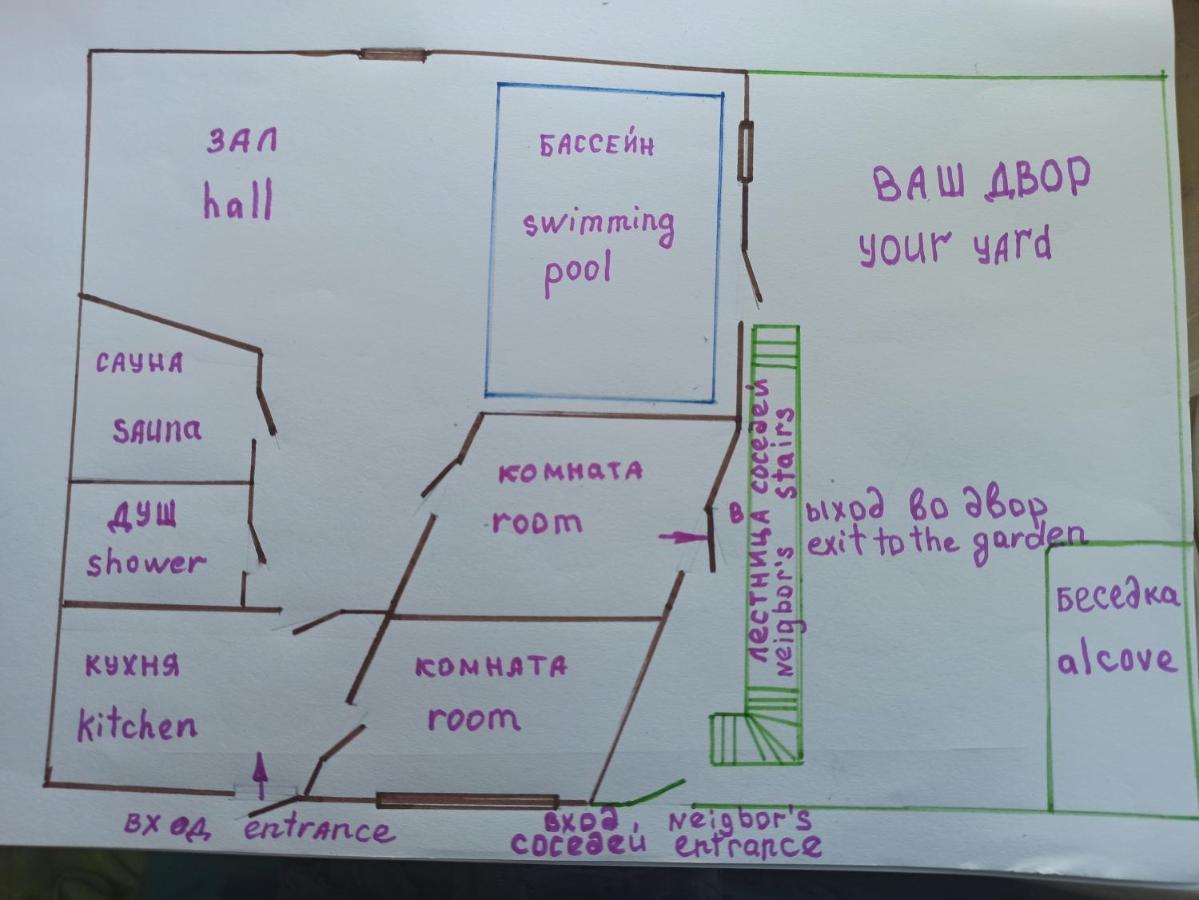 ЗАЛ
hall
БАССЕЙН
swimming
pool
ВАШ ДВОР
your yard
САУНА
sauna
ДУШ
shower
КОМНАТА
room
ЛЕСТНИЦА СОСЕДЕЙ
Neigbor's stairs
ВЫХОД ВО ДВОР
exit to the garden
Беседка
alcove
КУХНЯ
kitchen
КОМНАТА
room
ВХОД entrance
ВХОД, Neigbor's
СОСЕДЕЙ entrance